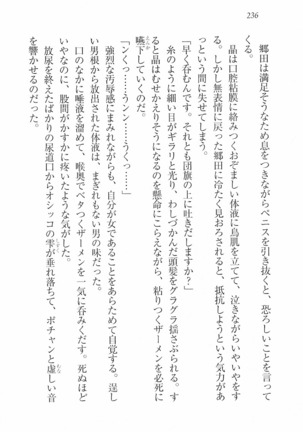 236
郷田は満足そうなため息をつきながらペニスを引き抜くと、恐ろしいことを言って
くる。
晶は口腔粘膜に絡みつくおぞましい体液に鳥肌を立てて、泣きながらいやいやをす
る。しかし無表情に戻った郷田に冷たく見おろされると、抵抗しようという気力があ
っという間に失せてしまう。
「早く呑むんです。それとも団旗の上に吐きだしますか？」
糸のように細い目がギラリと光り、わしづかんだ頭髪をグラグラ揺さぶられる。す
ると晶はむせかえりそうになるのを懸命にこらえながら、粘りつくザーメンを必死に
嚥下していくのだ。
「ンくっ……うンン……うくっ」
強烈な汚辱感にまみれながらも、自分が女であることをあらためて自覚する。逞し
い男根から放出された体液は、まぎれもない男の味だった。
口のなかに唾液を溜めて、喉奥でベタつくザーメンを一気に呑みくだす。死ぬほど
いやなのに、股間がかすかに疼いたような気がした。
放尿を終えたばかりの尿道口からオシッコの雫が垂れ落ちて、ポチャンと虚しい音
を響かせるのだった。